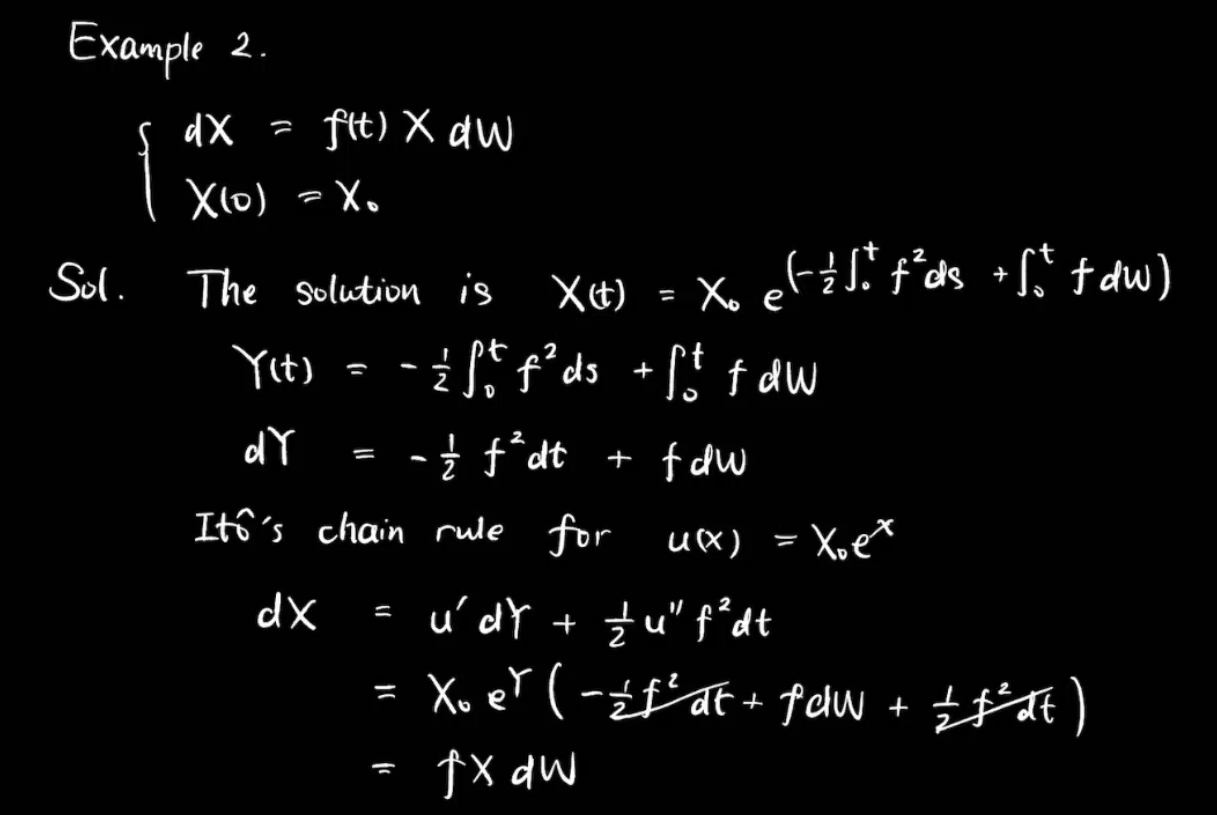 Example 2.
{ dX = f(t) X dW
X(0) = X₀
Sol. The solution is X(t) = X₀ e^(-½∫₀ᵗ f²ds + ∫₀ᵗ f dW)
Y(t) = -½∫₀ᵗ f²ds + ∫₀ᵗ f dW
dY = -½ f²dt + f dW
Itô's chain rule for u(x) = X₀eˣ
dX = u′dY + ½u″f²dt
= X₀ e^Y (-½f²dt + fdW + ½f²dt)
= fX dW